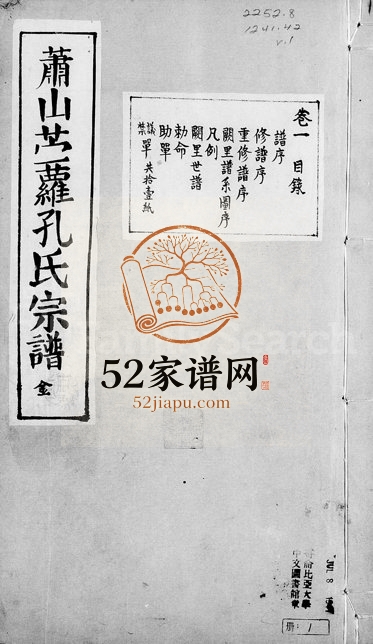 2252.8
1241.42
v.1
蕭山苎蘿孔氏宗譜
金
卷一 目錄
譜序
修譜序
重修譜序
闕里譜系圖序
凡例
闕里世譜
勅命
助單
議禁單 共拾壹紙
52家谱网
52jiapu.com
哥倫比亞大學
中文圖書館章
JUL 8
冊 1